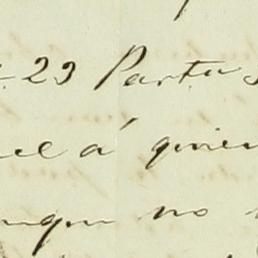 23 Partu
el á quien
unque no